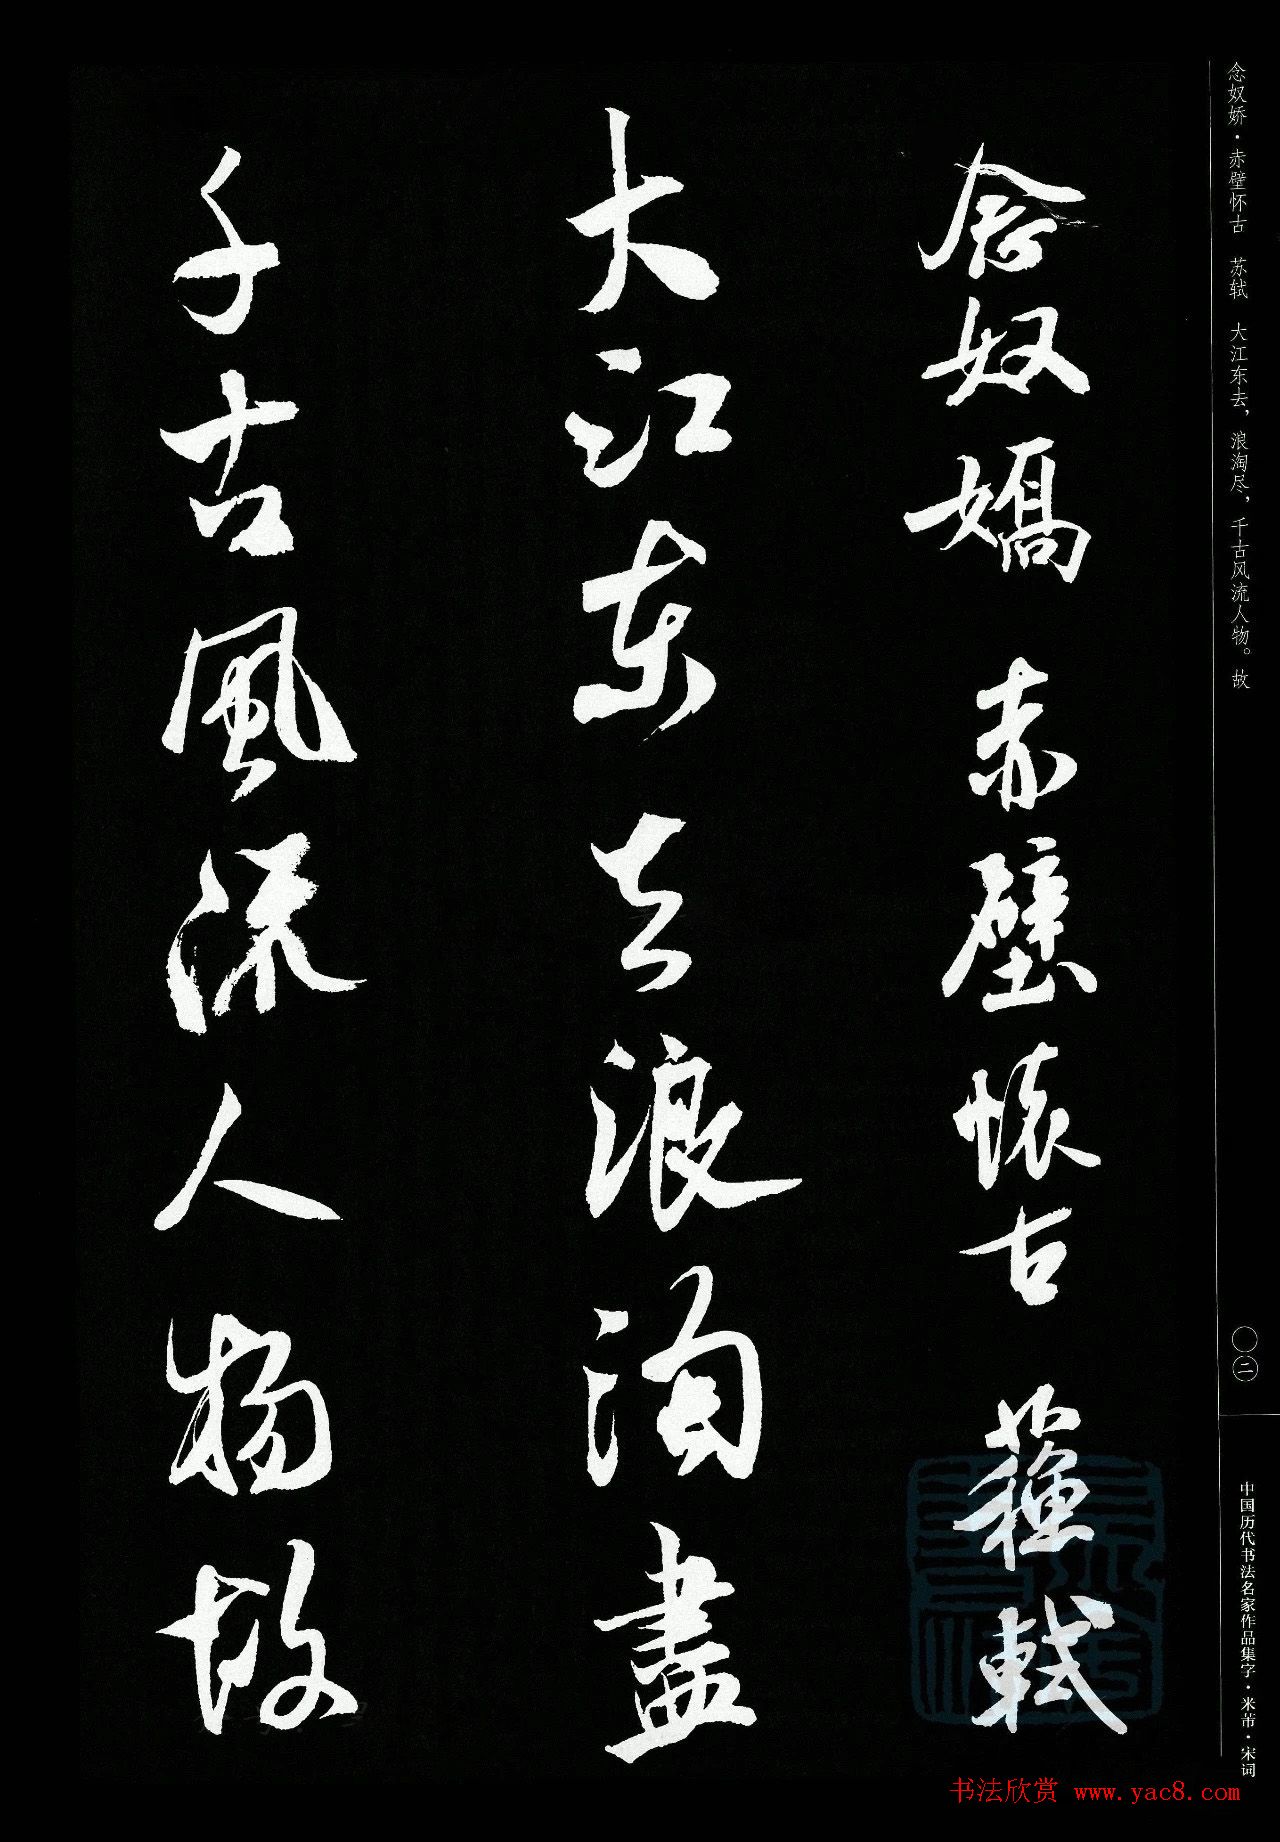 念奴嬌 赤壁懷古 蘇軾
大江東去浪淘盡
千古風流人物故
念奴娇·赤壁怀古 苏轼 大江东去，浪淘尽，千古风流人物。故
〇二
中国历代书法名家作品集字·米芾·宋词
书法欣赏 www.yac8.com